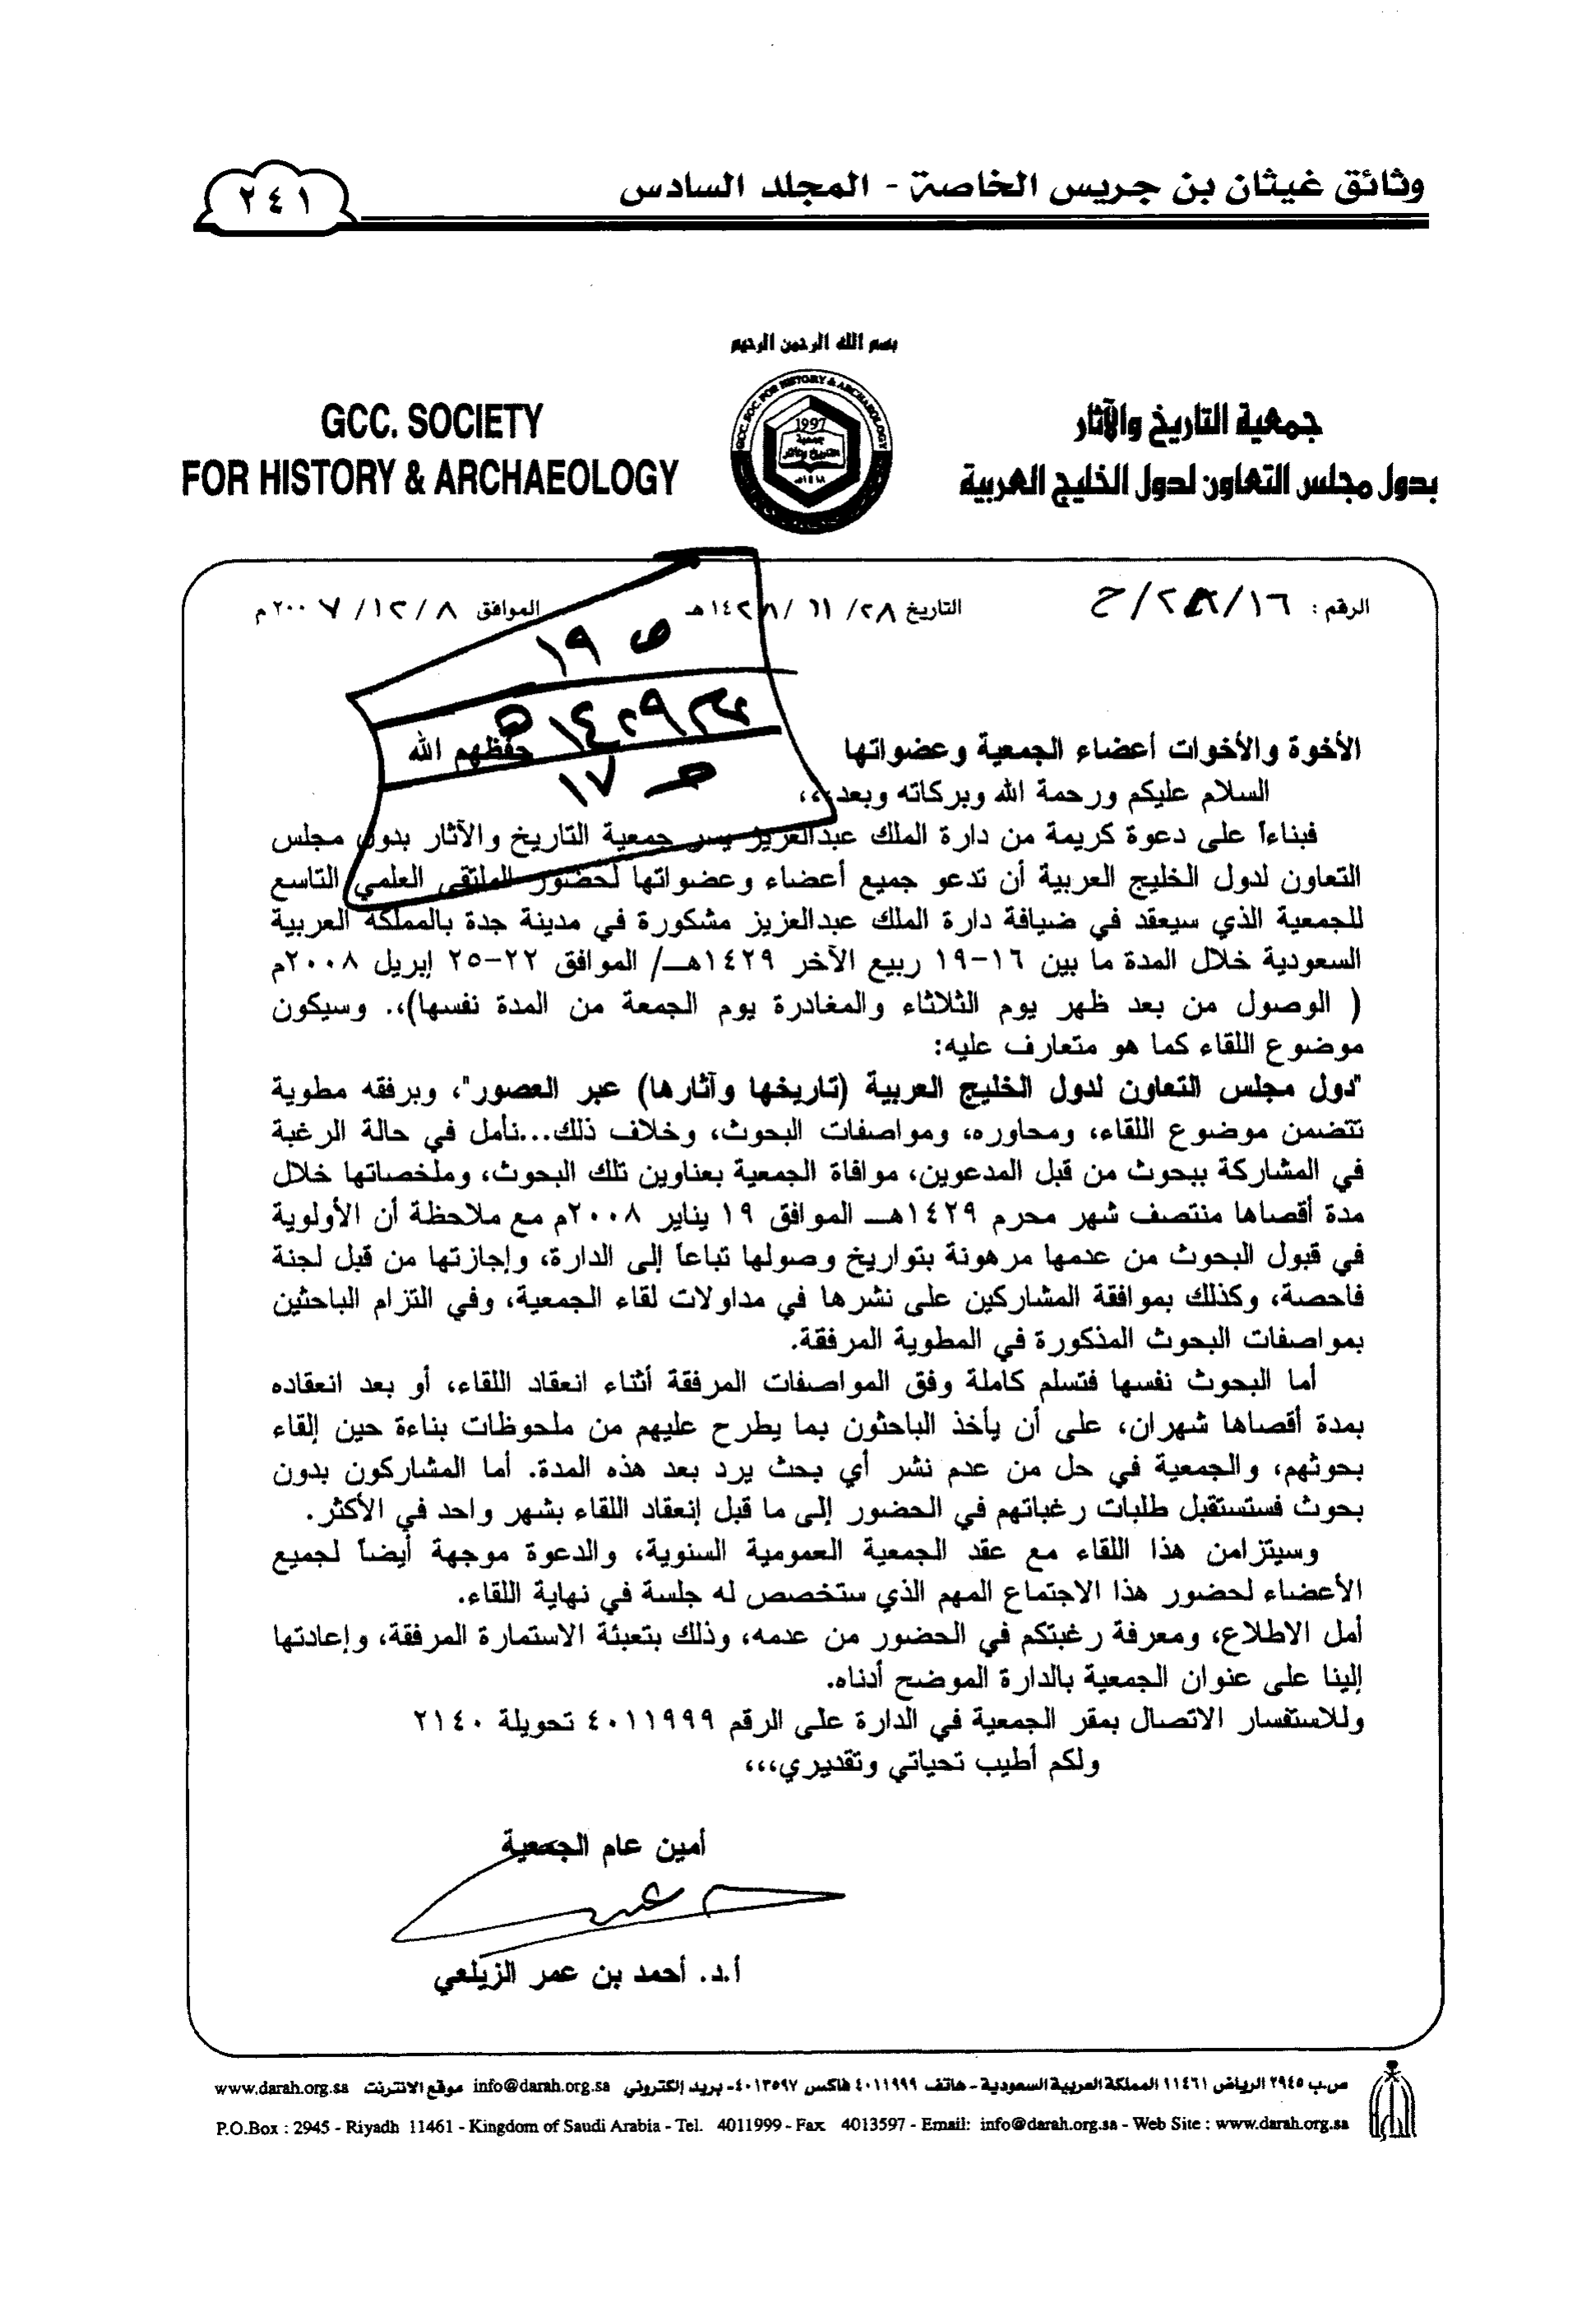 وثائق غيثان بن جريس الخاصة - المجلد السادس
٢٤١
بسم الله الرحمن الرحيم
جمعية التاريخ والآثار
بدول مجلس التعاون لدول الخليج العربية
GCC. SOCIETY
FOR HISTORY & ARCHAEOLOGY
GCC. SOC. FOR HISTORY & ARCHAEOLOGY
1997
جمعية
التاريخ والآثار
١٤١٨هـ
الرقم : ١٦/ /ح
التاريخ ٢٨/ ١١/ ١٤٢٨هـ
الموافق ٨/ ١٢/ ٢٠٠٧ م
ص ١٩
١٤٢٩هـ
ص ١٧
الأخوة والأخوات أعضاء الجمعية وعضواتها حفظهم الله
السلام عليكم ورحمة الله وبركاته وبعد،،،
فبناءاً على دعوة كريمة من دارة الملك عبدالعزيز يسر جمعية التاريخ والآثار بدول مجلس
التعاون لدول الخليج العربية أن تدعو جميع أعضاء وعضواتها لحضور الملتقى العلمي التاسع
للجمعية الذي سيعقد في ضيافة دارة الملك عبدالعزيز مشكورة في مدينة جدة بالمملكة العربية
السعودية خلال المدة ما بين ١٦-١٩ ربيع الآخر ١٤٢٩هـ/ الموافق ٢٢-٢٥ إبريل ٢٠٠٨م
( الوصول من بعد ظهر يوم الثلاثاء والمغادرة يوم الجمعة من المدة نفسها)،. وسيكون
موضوع اللقاء كما هو متعارف عليه:
"دول مجلس التعاون لدول الخليج العربية (تاريخها وآثارها) عبر العصور"، وبرفقه مطوية
تتضمن موضوع اللقاء، ومحاوره، ومواصفات البحوث، وخلاف ذلك...نأمل في حالة الرغبة
في المشاركة ببحوث من قبل المدعوين، موافاة الجمعية بعناوين تلك البحوث، وملخصاتها خلال
مدة أقصاها منتصف شهر محرم ١٤٢٩هـ الموافق ١٩ يناير ٢٠٠٨م مع ملاحظة أن الأولوية
في قبول البحوث من عدمها مرهونة بتواريخ وصولها تباعاً إلى الدارة، وإجازتها من قبل لجنة
فاحصة، وكذلك بموافقة المشاركين على نشرها في مداولات لقاء الجمعية، وفي التزام الباحثين
بمواصفات البحوث المذكورة في المطوية المرفقة.
أما البحوث نفسها فتسلم كاملة وفق المواصفات المرفقة أثناء انعقاد اللقاء، أو بعد انعقاده
بمدة أقصاها شهران، على أن يأخذ الباحثون بما يطرح عليهم من ملحوظات بناءة حين إلقاء
بحوثهم، والجمعية في حل من عدم نشر أي بحث يرد بعد هذه المدة. أما المشاركون بدون
بحوث فستستقبل طلبات رغباتهم في الحضور إلى ما قبل إنعقاد اللقاء بشهر واحد في الأكثر.
وسيتزامن هذا اللقاء مع عقد الجمعية العمومية السنوية، والدعوة موجهة أيضاً لجميع
الأعضاء لحضور هذا الاجتماع المهم الذي ستخصص له جلسة في نهاية اللقاء.
أمل الاطلاع، ومعرفة رغبتكم في الحضور من عدمه، وذلك بتعبئة الاستمارة المرفقة، وإعادتها
إلينا على عنوان الجمعية بالدارة الموضح أدناه.
وللاستفسار الاتصال بمقر الجمعية في الدارة على الرقم ٤٠١١٩٩٩ تحويلة ٢١٤٠
ولكم أطيب تحياتي وتقديري،،،
أمين عام الجمعية
أ.د. أحمد بن عمر الزيلعي
ص.ب ٢٩٤٥ الرياض ١١٤٦١ المملكة العربية السعودية - هاتف ٤٠١١٩٩٩ فاكس ٤٠١٣٥٩٧- بريد إلكتروني info@darah.org.sa موقع الانترنت www.darah.org.sa
P.O.Box : 2945 - Riyadh 11461 - Kingdom of Saudi Arabia - Tel. 4011999 - Fax 4013597 - Email: info@darah.org.sa - Web Site : www.darah.org.sa